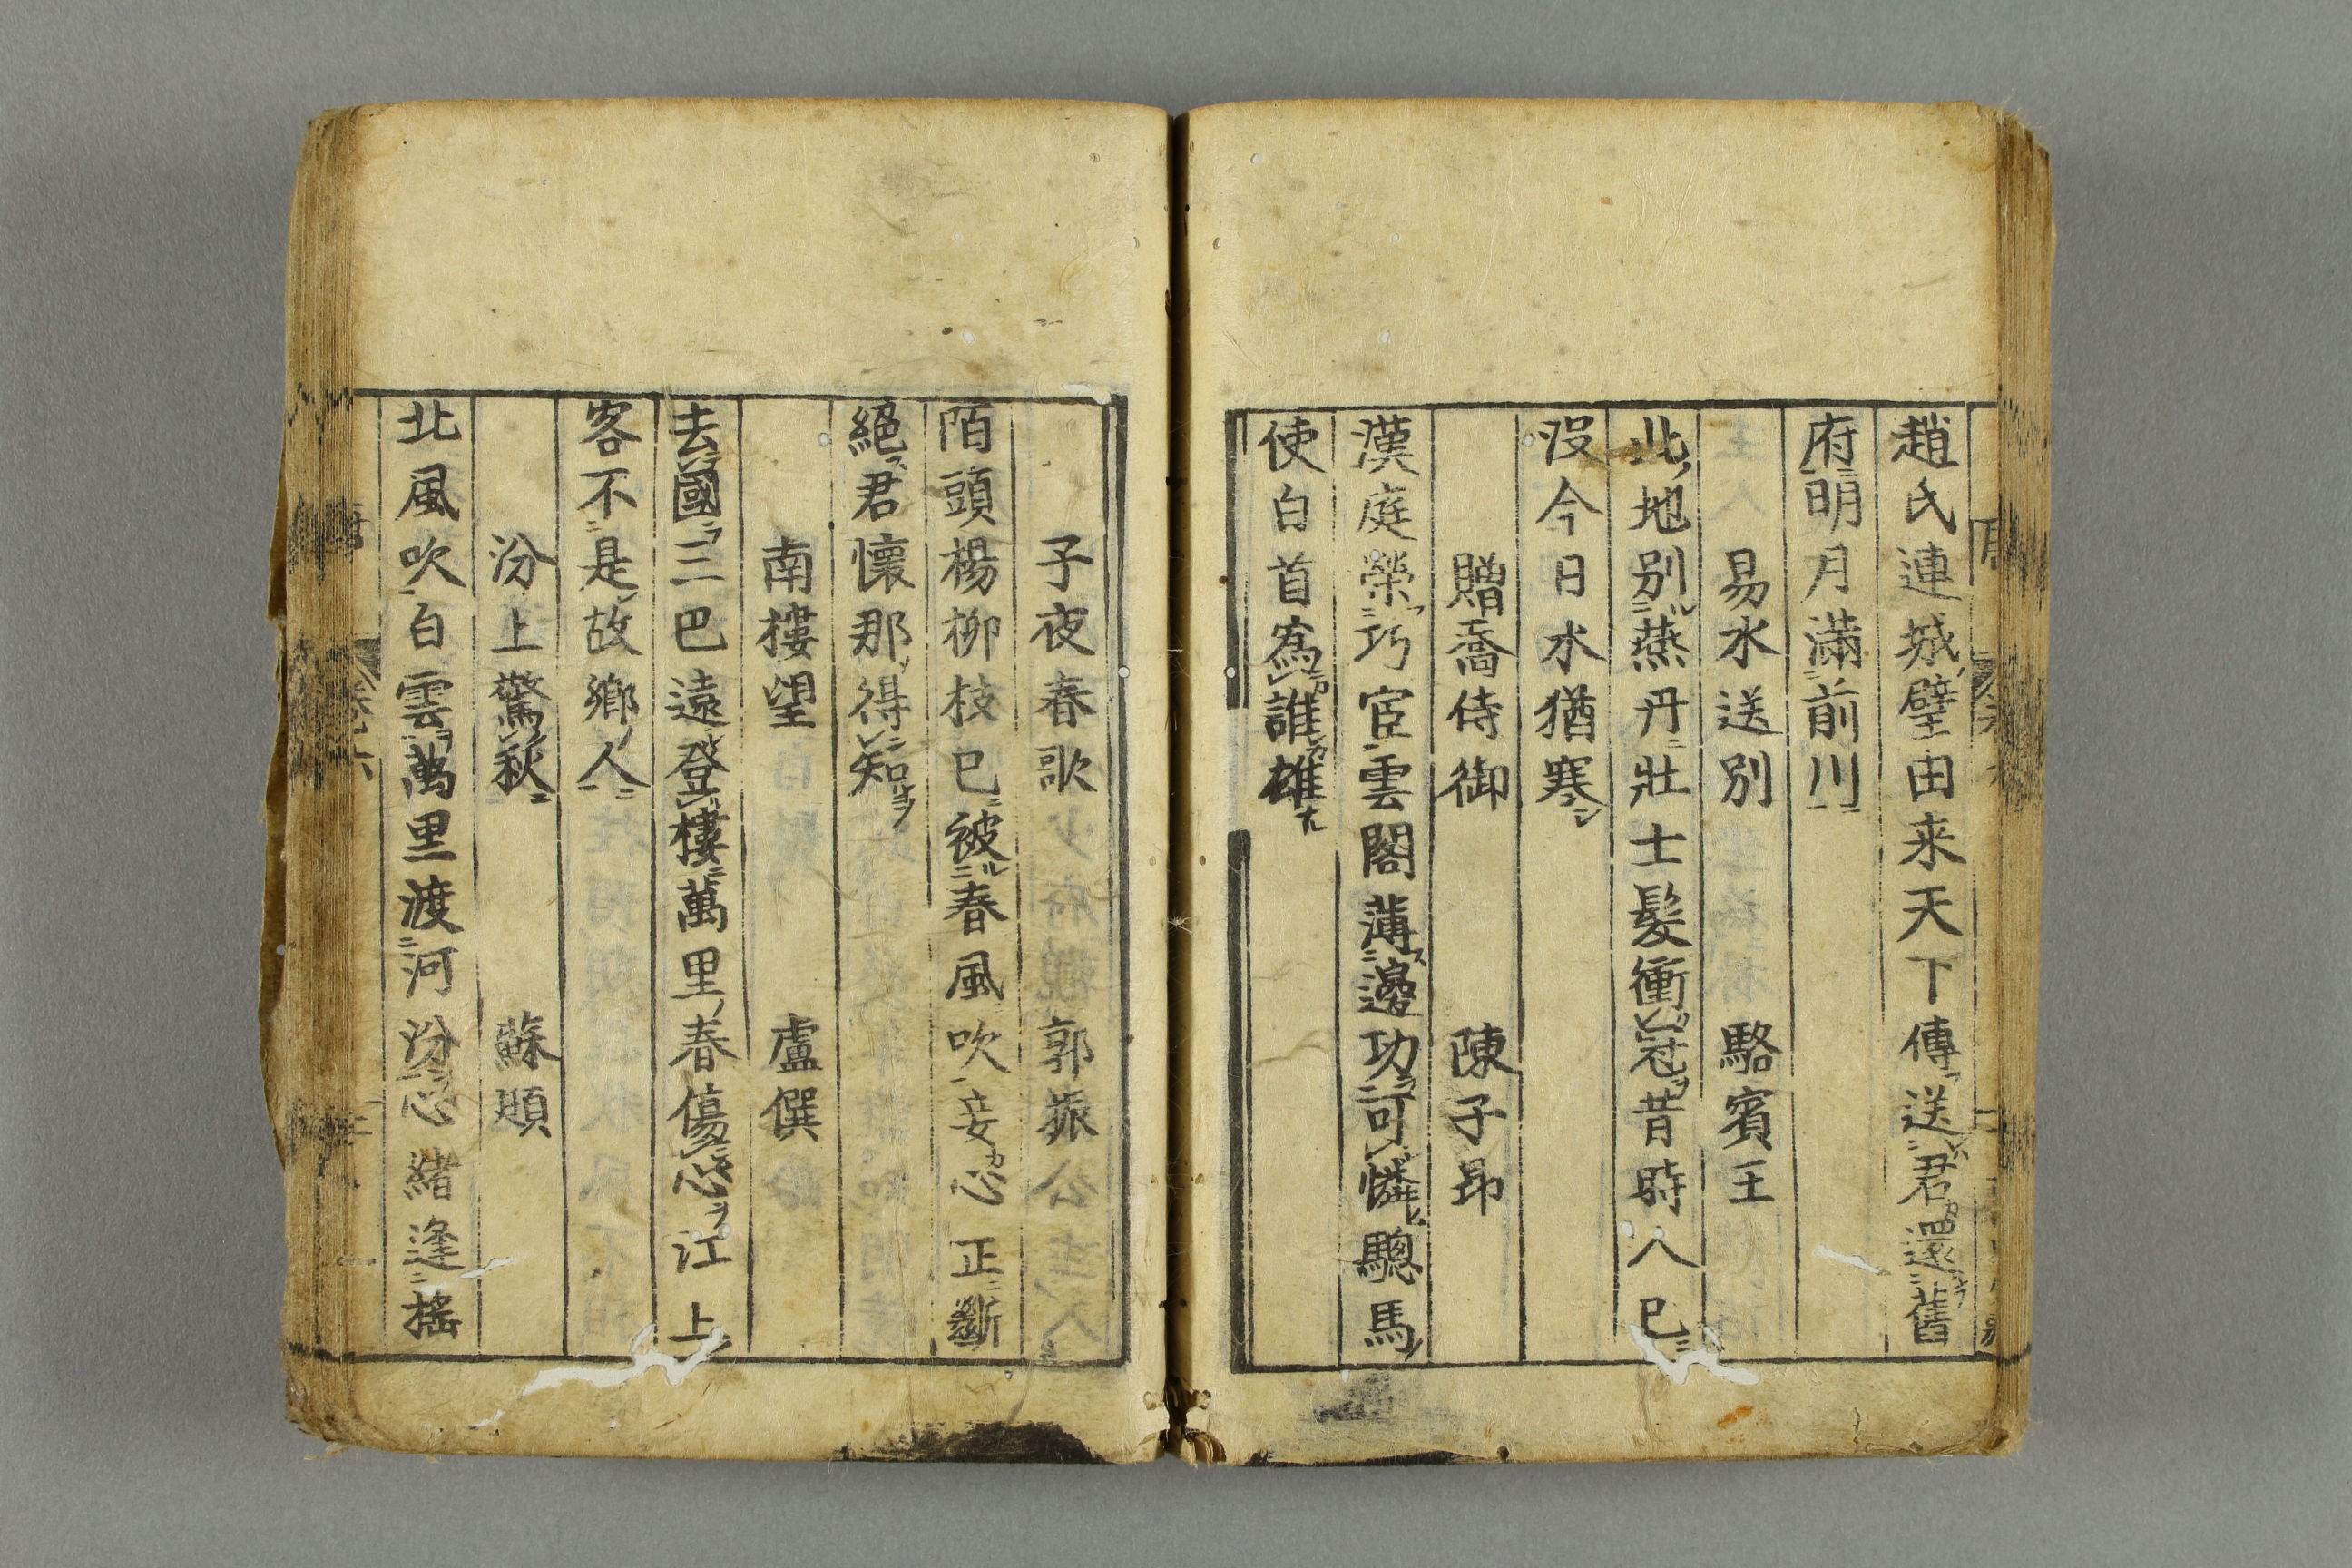 趙氏連城璧由来天下傳送君還舊
府明月滿前川
易水送別 駱賓王
北地別燕丹壯士髮衝冠昔時人已
沒今日水猶寒
贈喬侍御 陳子昻
漢庭榮巧宦雲閣薄邊功可憐驄馬
使白首爲誰雄
子夜春歌 郭振
陌頭楊柳枝已被春風吹妾心正斷
絕君懷那得知
南樓望 盧僎
去國三巴遠登樓萬里春傷心江上
客不是故鄉人
汾上驚秋 蘇頲
北風吹白雲萬里渡河汾心緒逢搖